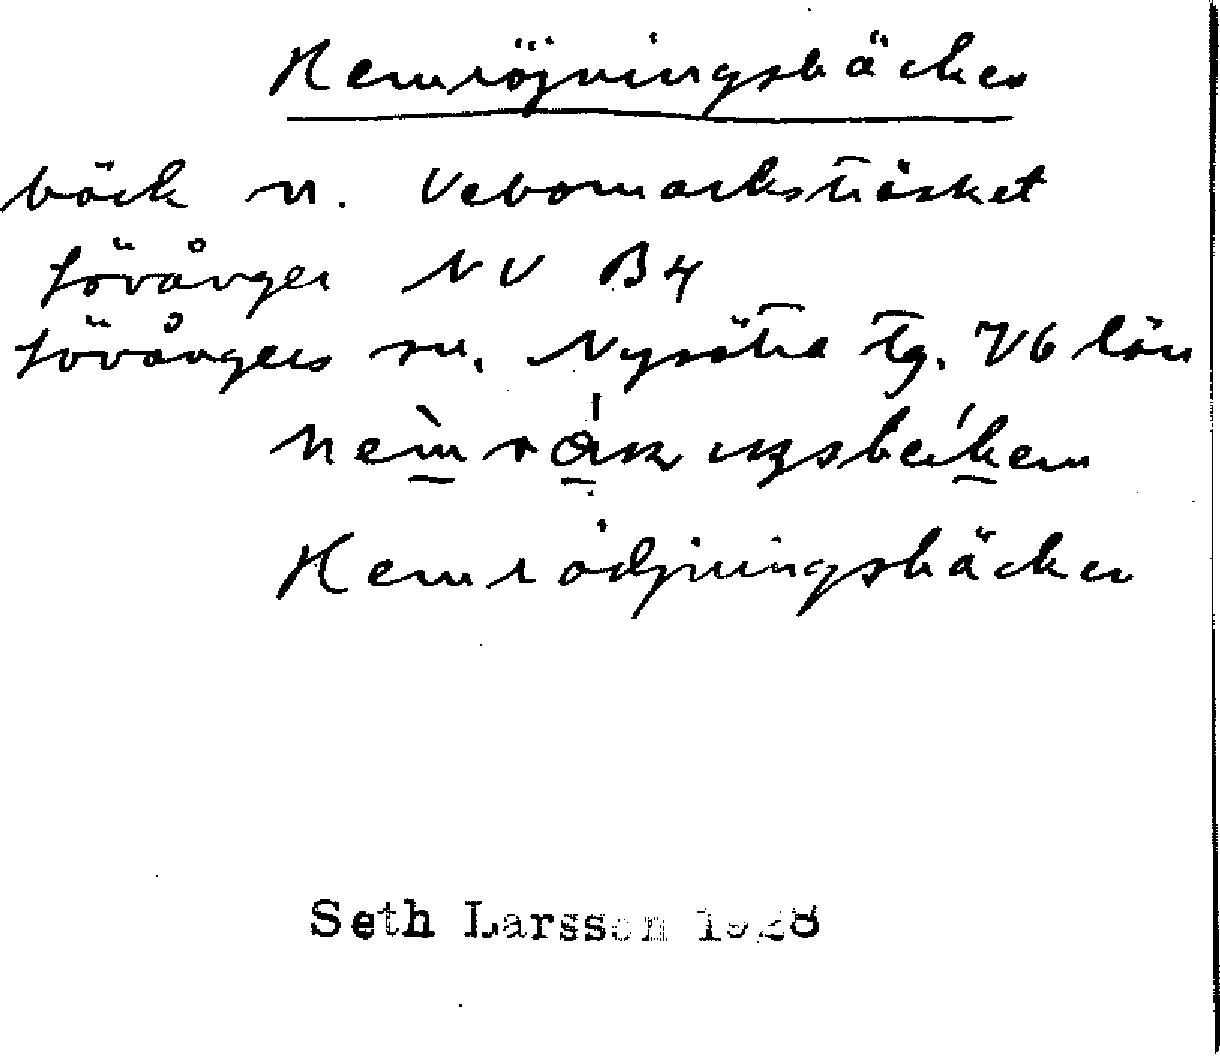 Hemröjningsbäcken
bäck n. Vebomarksträsket
Lövånger NV B4
Lövångers sn. Nysätra tg. Vb län
Hemrödjningsbäcken
Seth Larsson 1928